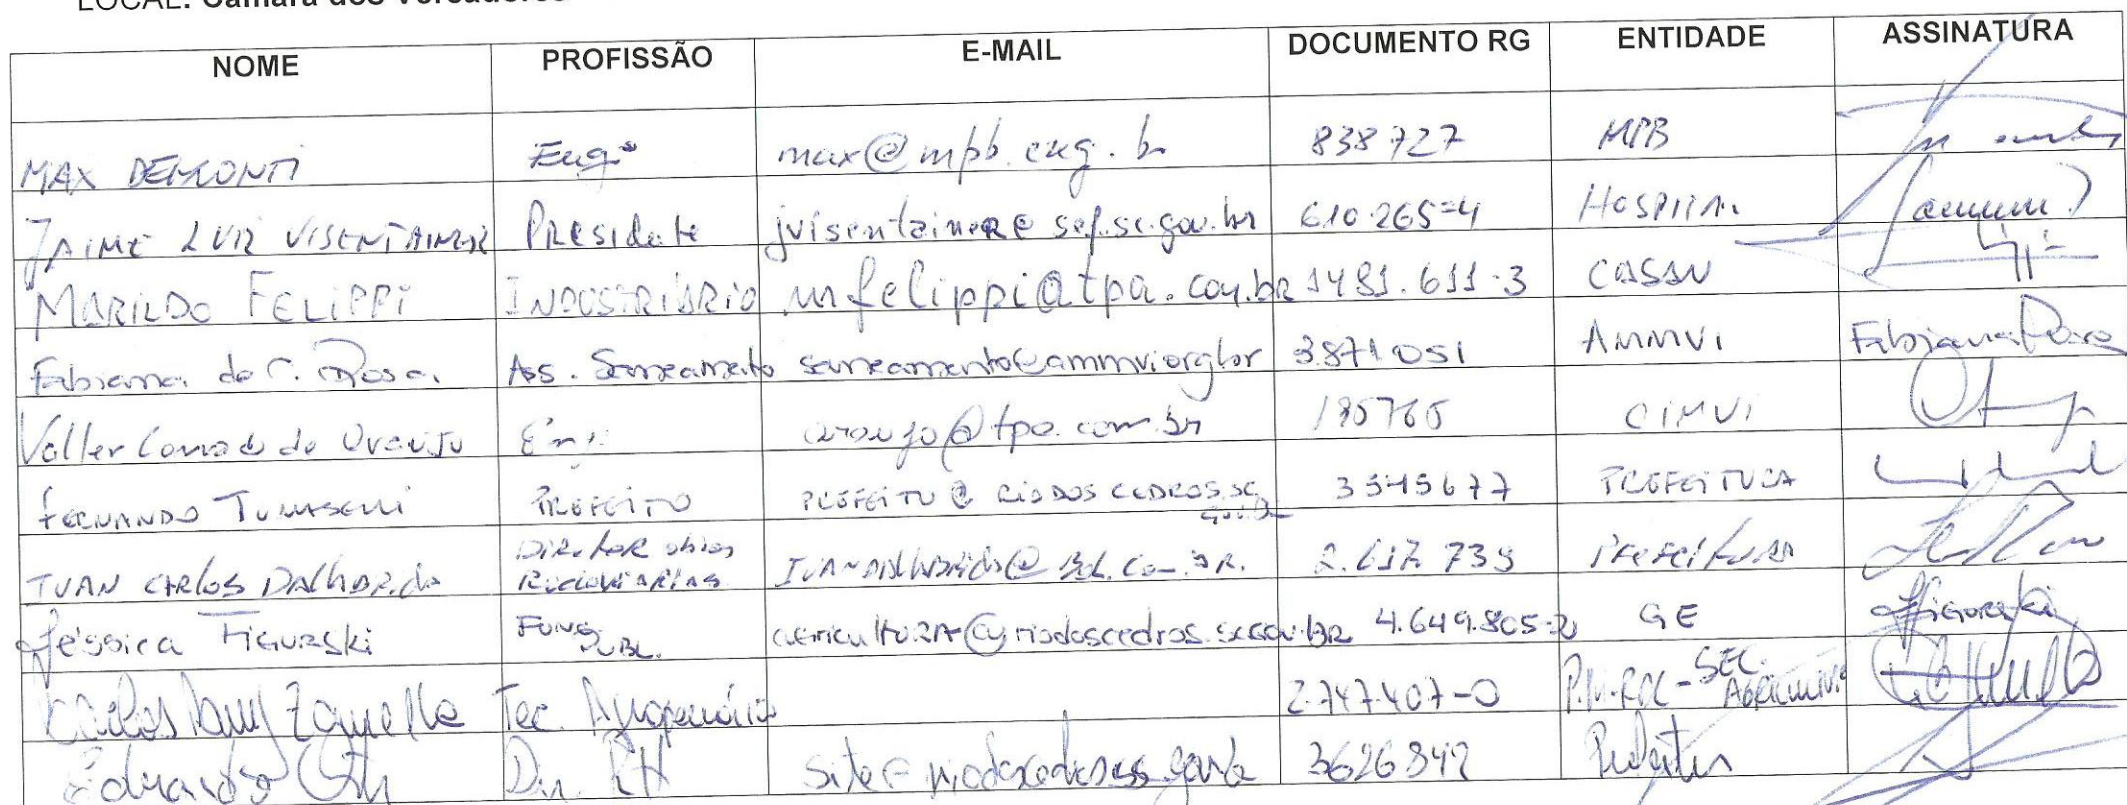 LOCAL: Câmara dos Vereadores
NOME PROFISSÃO E-MAIL DOCUMENTO RG ENTIDADE ASSINATURA
MAX DEMONTI Engº max@mpb.eng.br 838727 MPB
JAIME LUIZ VISENTAINER Presidente jvisentainer@sef.sc.gov.br 610.265-4 HOSPITAL
MARILDO FELIPPI INDUSTRIÁRIO mfelippi@tpa.com.br 1481.611-3 CASAN
Fabiana de C. Rosa. Ass. Saneamento saneamento@ammvi.org.br 3.871.051 AMMVI Fabiana Rosa
Valter de Araujo Eng. araujo@tpa.com.br CIMVI
FERNANDO TOMASELLI PREFEITO PREFEITO@RIODOSCEDROS.SC. 3545677 PREFEITURA
GOV.BR
IVAN CARLOS Dalmarco DIRETOR obras PREFEITURA
RODOVIÁRIAS
Jéssica FIGURSKI FUNC. agricultura@riodoscedros.sc.gov.br 4.649.805-2 GE JFigurski
PUBL.
Carlos Zanella Tec. Agropecuário 2.747.407-0 P.M.RDC-SEC.
AGRICULTURA
Eduardo Dir. RH 3626842